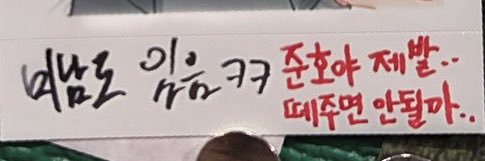 미남도 있음 ㅋㅋ
준호야 제발..
떼주면 안될까..